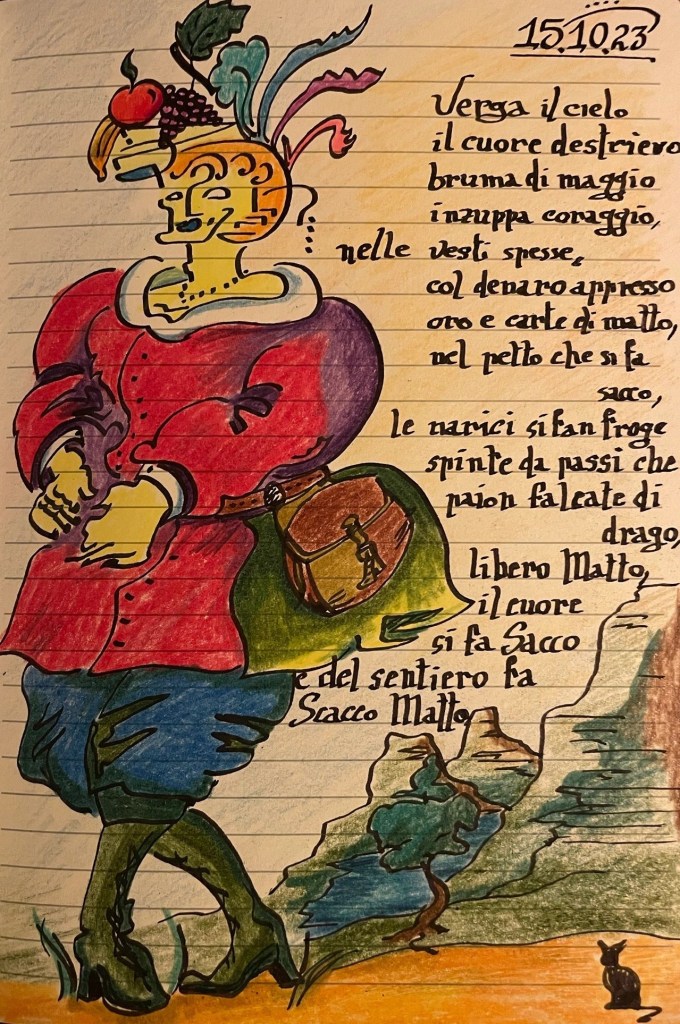 15.10.23
Verga il cielo
il cuore destriero
bruma di maggio
inzuppa coraggio,
nelle vesti spesse,
col denaro appresso
oro e carte di matto,
nel petto che si fa
sacco,
le narici si fan froge
spinte da passi che
paion falcate di
drago,
libero Matto,
il cuore
si fa Sacco
e del sentiero fa
Scacco Matto